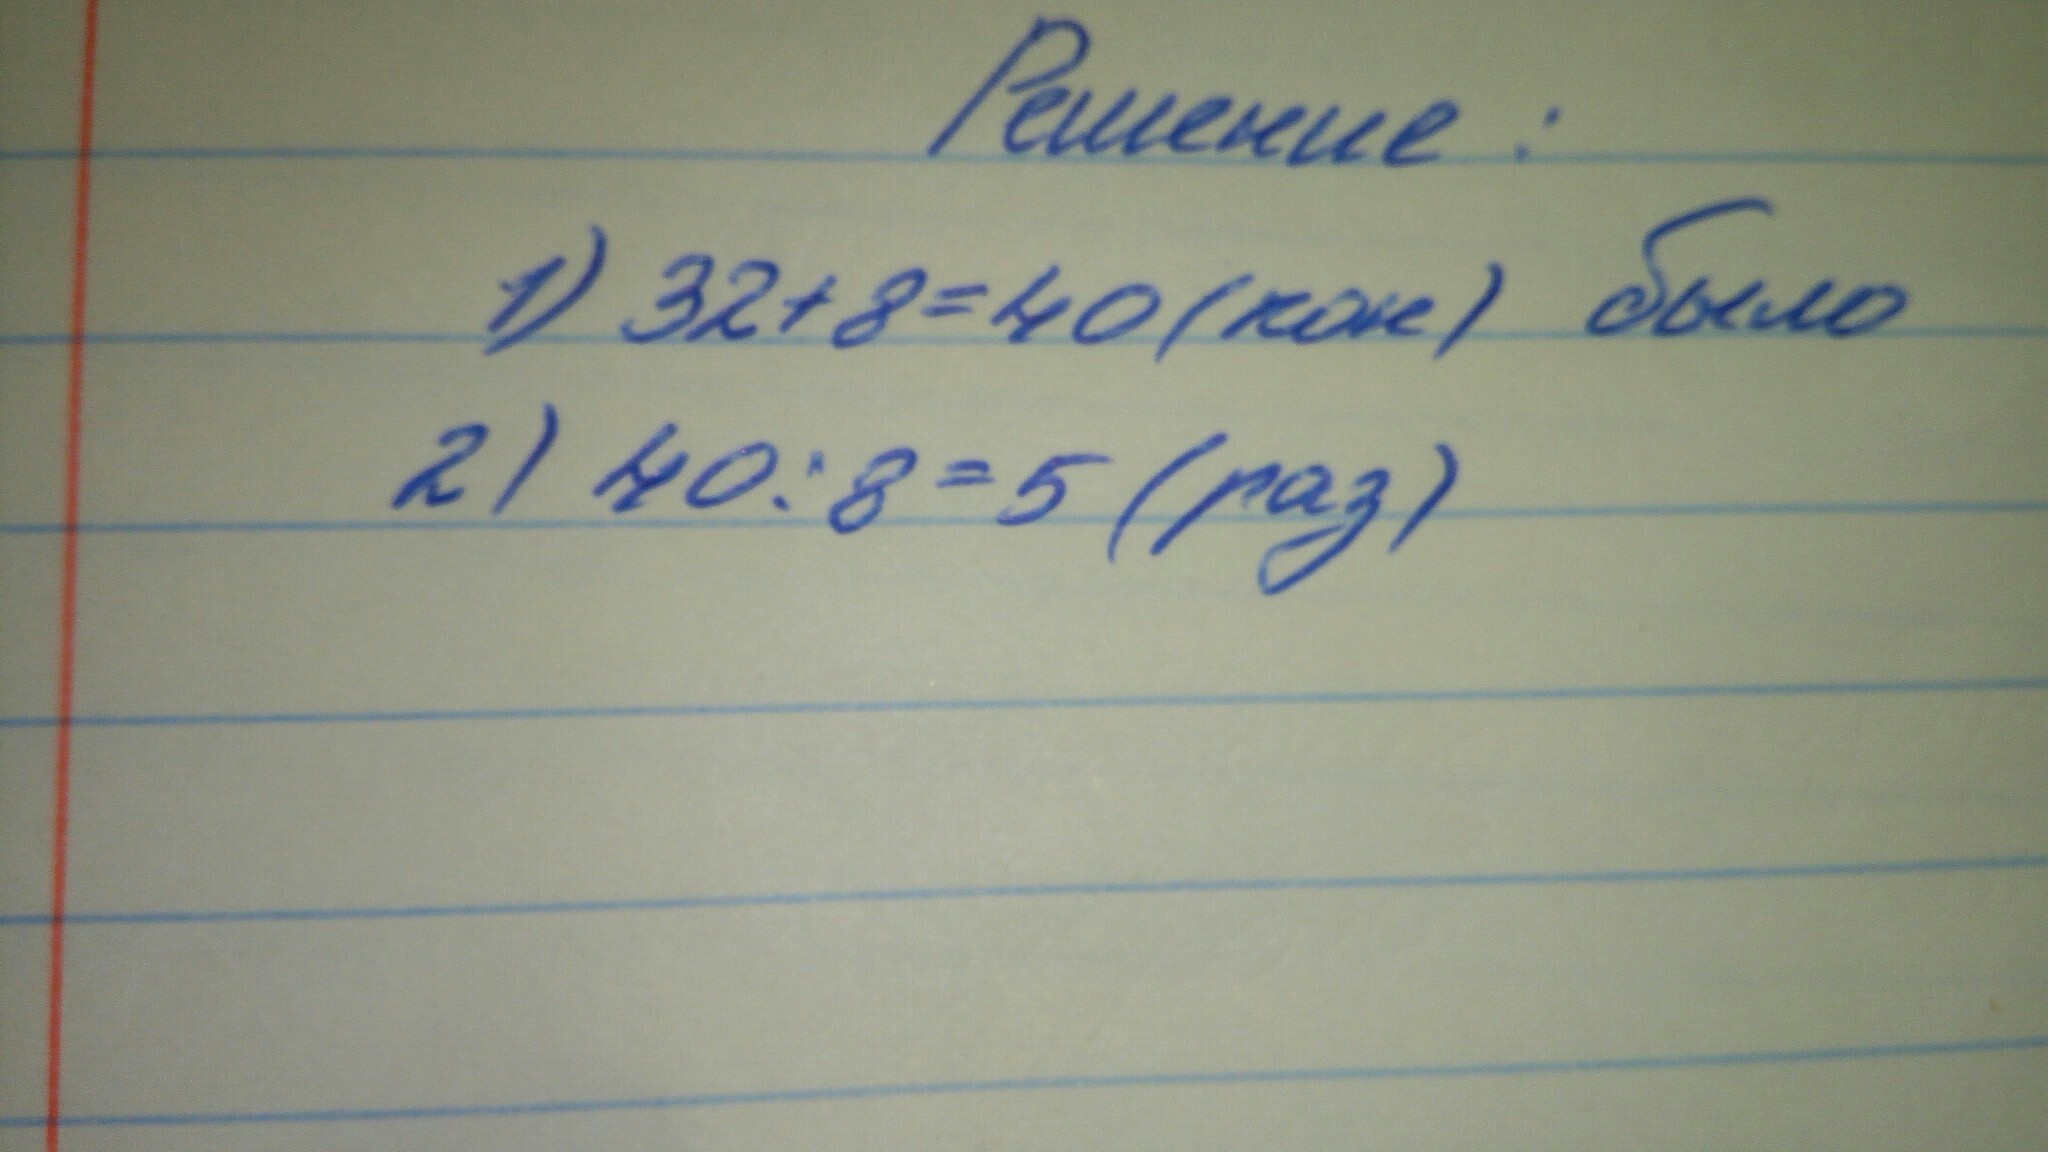 Решение:
1) 32+8=40 (кон) было
2) 40:8=5 (раз)